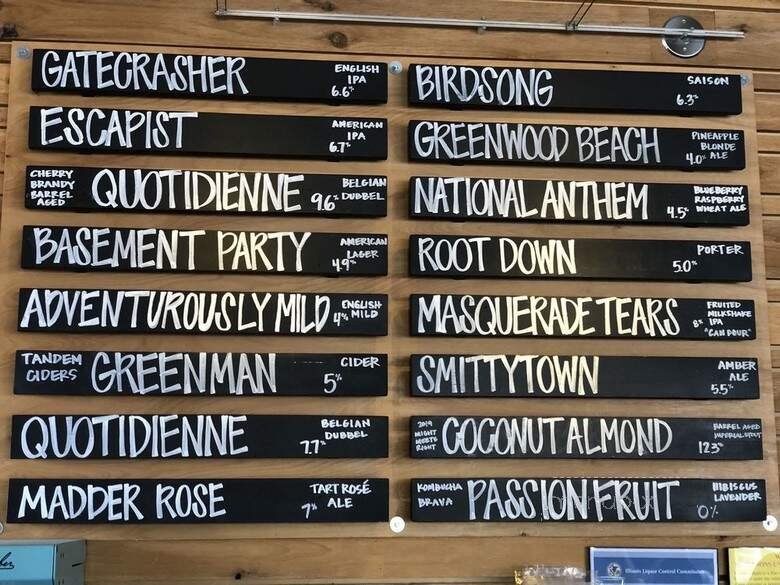 GATECRASHER
ENGLISH
IPA
6.6%
ESCAPIST
AMERICAN
IPA
6.7%
CHERRY
BRANDY
BARREL
AGED
QUOTIDIENNE
9.6%
BELGIAN
DUBBEL
BASEMENT PARTY
AMERICAN
LAGER
4.9%
ADVENTUROUSLY MILD
4%
ENGLISH
MILD
TANDEM
CIDERS
GREENMAN
CIDER
5%
QUOTIDIENNE
BELGIAN
DUBBEL
7.7%
MADDER ROSE
TART ROSÉ
ALE
7%
BIRDSONG
SAISON
6.3%
GREENWOOD BEACH
PINEAPPLE
BLONDE
4.0% ALE
NATIONAL ANTHEM
4.5%
BLUEBERRY
RASPBERRY
WHEAT ALE
ROOT DOWN
PORTER
5.0%
MASQUERADE TEARS
8%
FRUITED
MILKSHAKE
IPA
"CAN POUR"
SMITTYTOWN
AMBER
ALE
5.5%
2019
MIGHT
MEETS
RIGHT
COCONUT ALMOND
BARREL AGED
IMPERIAL STOUT
12.3%
KOMBUCHA
BRAVA
PASSION FRUIT
HIBISCUS
LAVENDER
0%
Illinois Liquor Control Commission